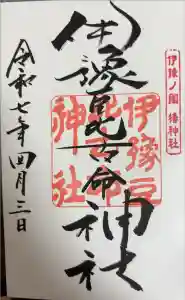 伊豫ノ國 椿神社
伊豫豆比古命神社
伊豫豆
比古命
神社
令和七年四月三日